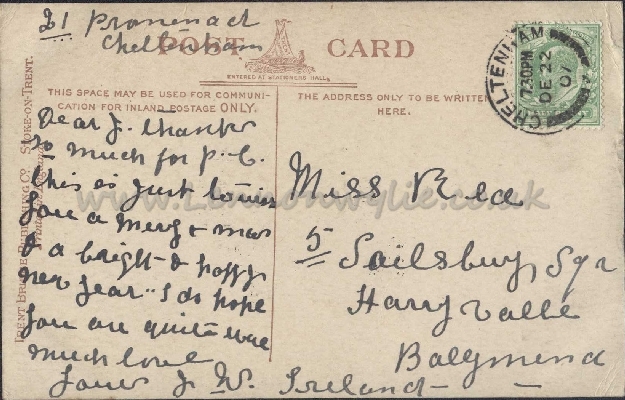 21 Promenade
Cheltenham
POST CARD
ENTERED AT STATIONERS HALL
THIS SPACE MAY BE USED FOR COMMUNI-
CATION FOR INLAND POSTAGE ONLY.
THE ADDRESS ONLY TO BE WRITTEN
HERE.
CHELTENHAM
7.30PM
DE 22
07
TRENT BRIDGE PUBLISHING CO. STOKE-ON-TRENT.
Dear J. thanks
so much for p.c.
this is just to wish
you a merry x mas
& a bright & happy
new year. I do hope
you are quite well
much love
yours J. W.
Miss Rea
5 Sailsbury Sqr
Harryvalle
Ballymena
Ireland
www.Lennonwylie.co.uk